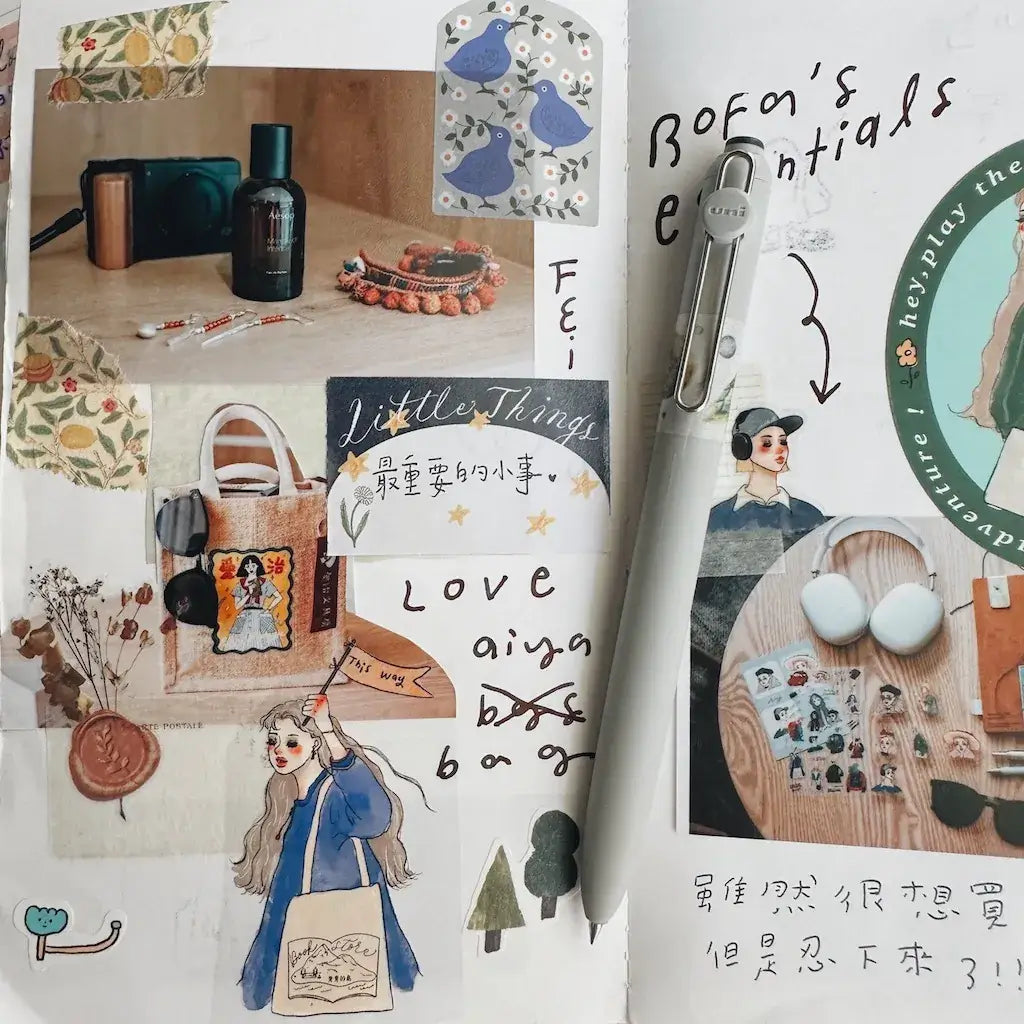 Aesop
F&i
Little Things
最重要的小事
愛治
LOVE
aiya
bag
This way
CARTE POSTALE
Book Store
Bofa's
uni
hey, play the
adventure!
雖然很想買
但是忍下來了!!